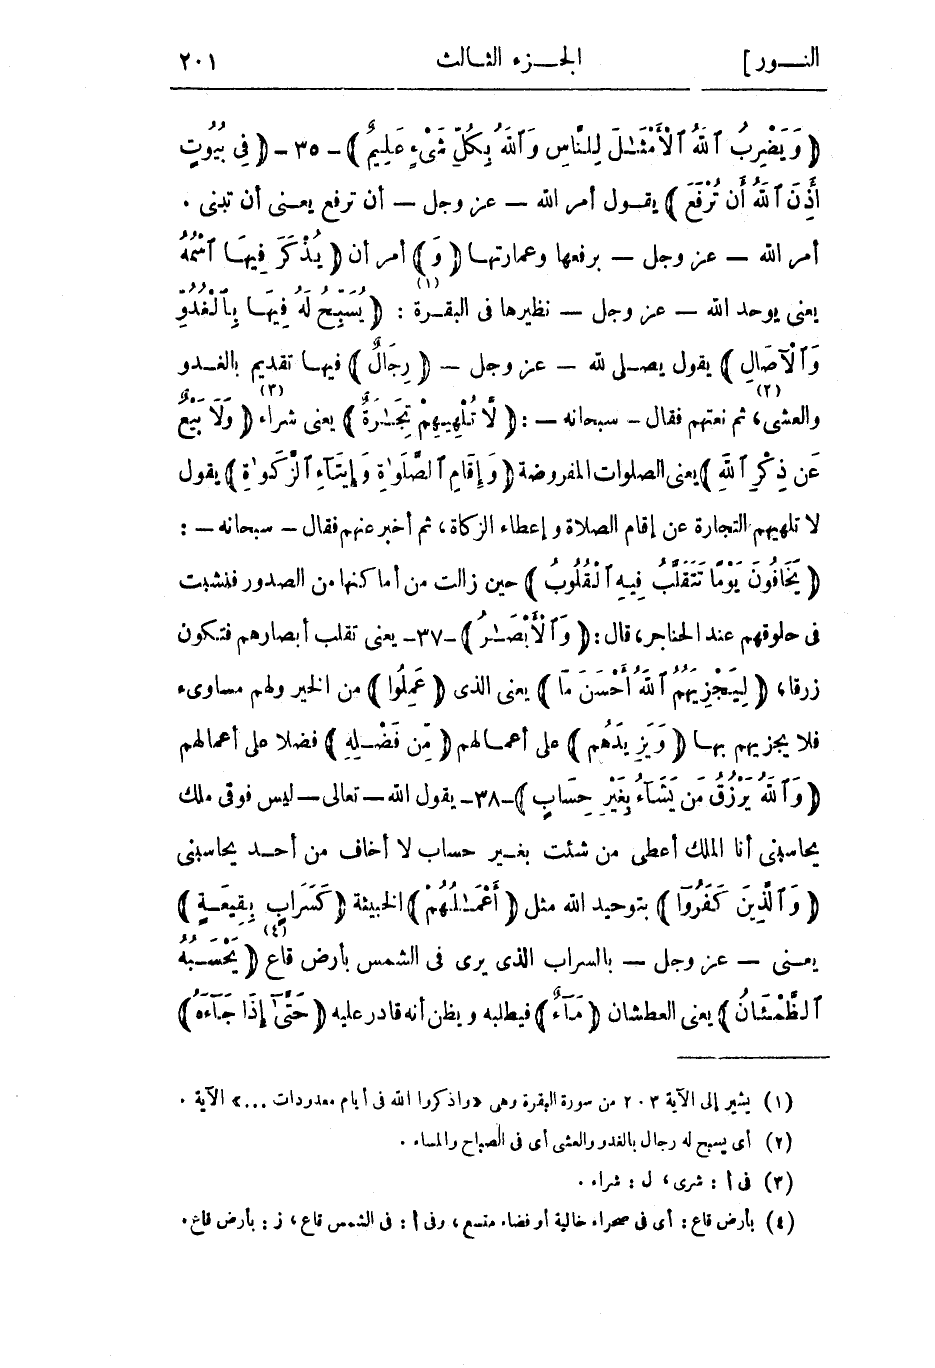 النـــور] الجـــزء الثـالث ٢٠١
﴿ وَيَضْرِبُ ٱللَّهُ ٱلْأَمْثَـٰلَ لِلنَّاسِ وَٱللَّهُ بِكُلِّ شَىْءٍ عَلِيمٌ ﴾ - ٣٥ - ﴿ فِى بُيُوتٍ
أَذِنَ ٱللَّهُ أَن تُرْفَعَ ﴾ يقـول أمر الله — عز وجل — أن ترفع يعـنى أن تبنى .
أمر الله — عز وجل — برفعها وعمارتهـا ﴿ وَ ﴾ أمر أن ﴿ يُذْكَرَ فِيهَـا ٱسْمُهُ ﴾
يعنى يوحد الله — عز وجل — نظيرها فى البقـرة (١) : ﴿ يُسَبِّحُ لَهُ فِيهَـا بِٱلْغُدُوِّ
وَٱلْآصَالِ ﴾ يقول يصـلى لله — عز وجل — ﴿ رِجَالٌ ﴾ فيهـا تقديم بالغـدو
والعشى (٢) ، ثم نعتهم فقال — سبحانه — : ﴿ لَّا تُلْهِيهِمْ تِجَـٰرَةٌ ﴾ يعنى شراء (٣) ﴿ وَلَا بَيْعٌ
عَن ذِكْرِ ٱللَّهِ ﴾ يعنى الصلوات المفروضة ﴿ وَإِقَامِ ٱلصَّلَوٰةِ وَإِيتَآءِ ٱلزَّكَوٰةِ ﴾ يقول
لا تلهيهم التجارة عن إقام الصلاة و إعطاء الزكاة ، ثم أخبر عنهم فقال — سبحانه — :
﴿ يَخَافُونَ يَوْمًا تَتَقَلَّبُ فِيهِ ٱلْقُلُوبُ ﴾ حين زالت من أماكنها من الصدور فنشبت
فى حلوقهم عند الحناجر ، قال : ﴿ وَٱلْأَبْصَـٰرُ ﴾ -٣٧- يعنى تقلب أبصارهم فتكون
زرقا ، ﴿ لِيَجْزِيَهُمُ ٱللَّهُ أَحْسَنَ مَا ﴾ يعنى الذى ﴿ عَمِلُوا ﴾ من الخير ولهم مساوىء
فلا يجزيهم بهـا ﴿ وَيَزِيدَهُم ﴾ على أعمـالهم ﴿ مِّن فَضْـلِهِ ﴾ فضلا على أعمالهم
﴿ وَٱللَّهُ يَرْزُقُ مَن يَشَآءُ بِغَيْرِ حِسَابٍ ﴾ -٣٨- يقول الله — تعالى — ليس فوقى ملك
يحاسبنى أنا الملك أعطى من شئت بغـير حساب لا أخاف من أحـد يحاسبنى
﴿ وَٱلَّذِينَ كَفَرُوٓا ﴾ بتوحيد الله مثل ﴿ أَعْمَـٰلُهُمْ ﴾ الخبيثة ﴿ كَسَرَابٍ بِقِيعَـةٍ ﴾
يعـنى — عز وجل — بالسراب الذى يرى فى الشمس بأرض قاع (٤) ﴿ يَحْسَـبُهُ
ٱلظَّمْـَٔانُ ﴾ يعنى العطشان ﴿ مَآءً ﴾ فيطلبه و يظن أنه قادر عليه ﴿ حَتَّىٰٓ إِذَا جَآءَهُ ﴾
(١) يشير إلى الآية ٢٠٣ من سورة البقرة وهى «واذكروا الله فى أيام معدودات ...» الآية .
(٢) أى يسبح له رجال بالغدو والعشى أى فى الصباح والمساء .
(٣) فى أ : شرى ، ل : شراء .
(٤) بأرض قاع : أى فى صحراء خالية أو فضاء متسع ، وفى أ : فى الشمس قاع ، ز : بأرض قاع .